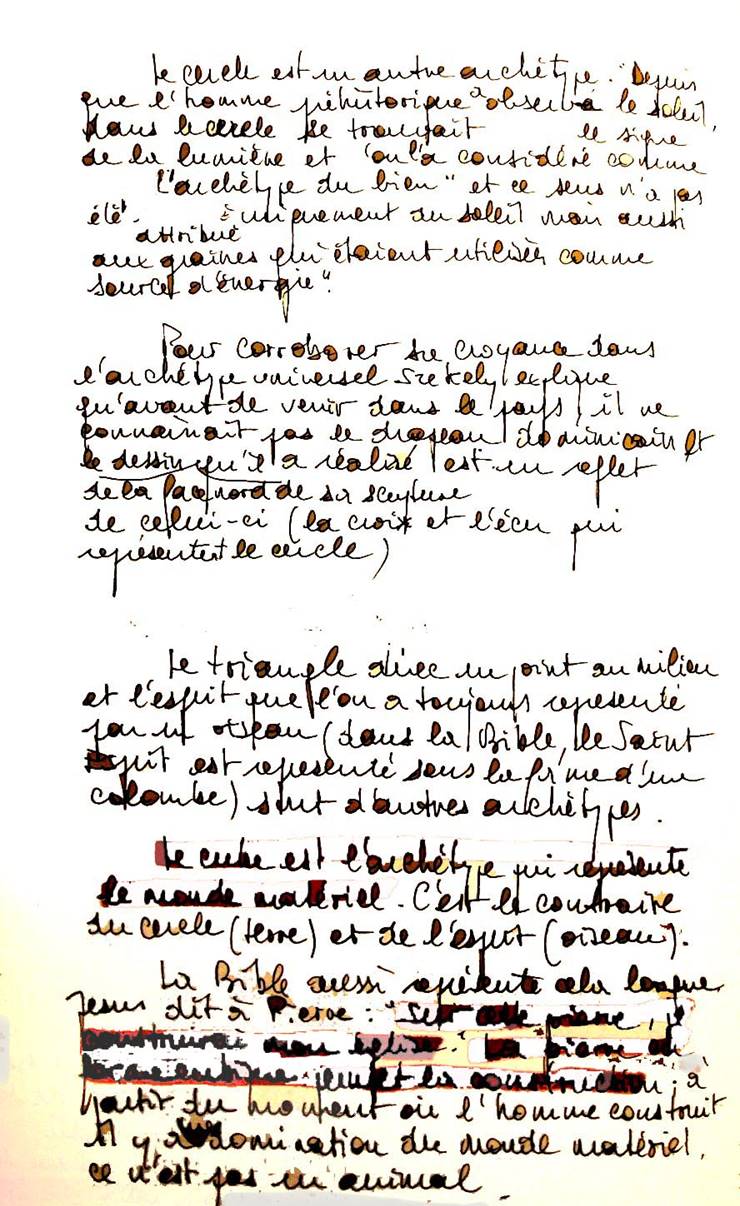 Le cercle est un autre archétype. "Depuis
que l'homme préhistorique a observé le soleil,
dans le cercle se trouvait le signe
de la lumière et on l'a considéré comme
l'archétype du bien" et ce sens n'a pas
été attribué uniquement au soleil mais aussi
aux graines qui étaient utilisées comme
source d'énergie".
Pour corroborer sa croyance dans
l'archétype universel Szekely explique
qu'avant de venir dans le pays, il ne
connaissait pas le drapeau dominicain et
le dessin qu'il a réalisé est un reflet
de la face nord de sa sculpture
de celui-ci (la croix et l'écu qui
représentent le cercle)
Le triangle avec un point au milieu
et l'esprit que l'on a toujours représenté
par un oiseau (dans la Bible, le Saint
Esprit est représenté sous la forme d'une
colombe) sont d'autres archétypes.
Le cube est l'archétype qui représente
le monde matériel. C'est le contraire
du cercle (terre) et de l'esprit (oiseau).
La Bible aussi représente cela lorsque
Jesus dit à Pierre: "Sur cette pierre, je
construirai mon église." La pierre
permet la construction; à
partir du moment où l'homme construit
il y a domination du monde matériel,
ce n'est pas un animal.